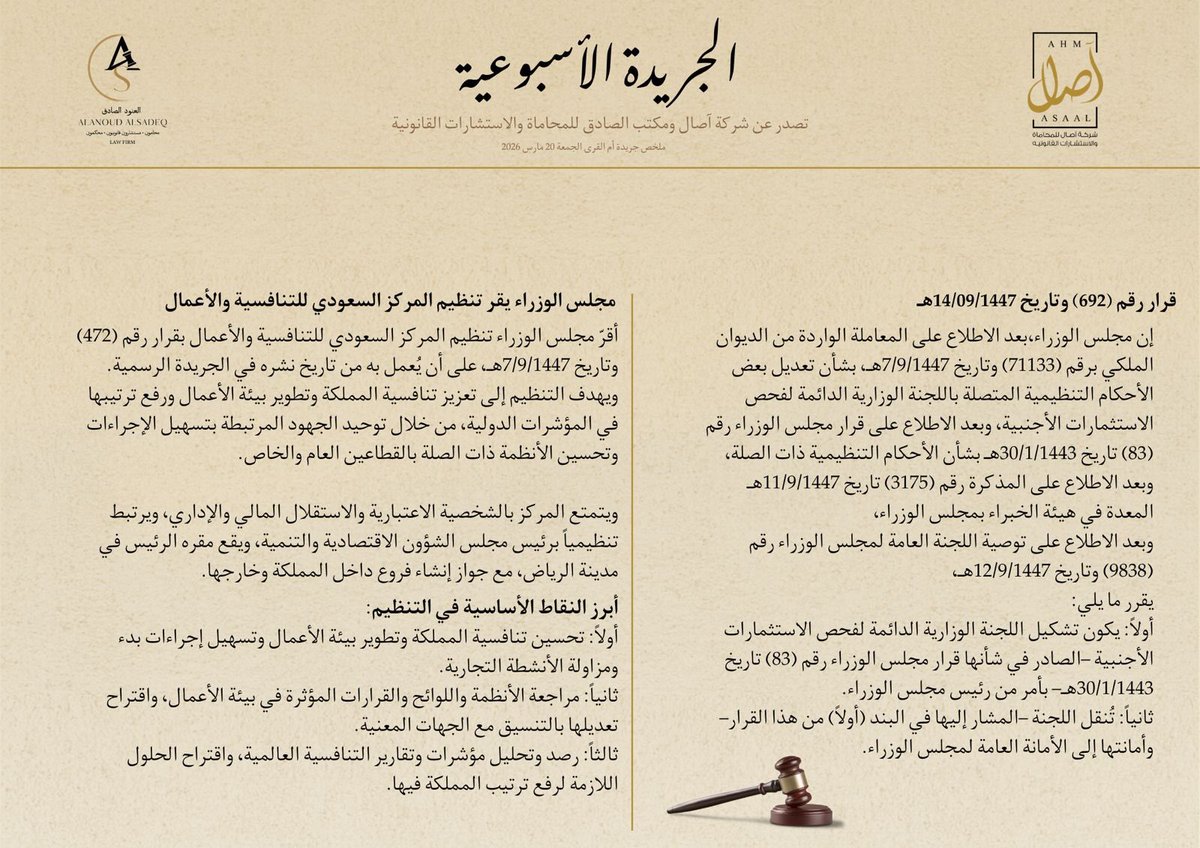 AHM
آصال
ASAAL
شركة آصال للمحاماة
والاستشارات القانونية
الجريدة الأسبوعية
تصدر عن شركة آصال ومكتب الصادق للمحاماة والاستشارات القانونية
ملخص جريدة أم القرى الجمعة 20 مارس 2026
AS
العنود الصادق
ALANOUD ALSADEQ
محامون - مستشارون قانونيون - محكمون
LAW FIRM
قرار رقم (692) وتاريخ 14/09/1447هـ
إن مجلس الوزراء،بعد الاطلاع على المعاملة الواردة من الديوان
الملكي برقم (71133) وتاريخ 7/9/1447هـ، بشأن تعديل بعض
الأحكام التنظيمية المتصلة باللجنة الوزارية الدائمة لفحص
الاستثمارات الأجنبية، وبعد الاطلاع على قرار مجلس الوزراء رقم
(83) تاريخ 30/1/1443هـ بشأن الأحكام التنظيمية ذات الصلة،
وبعد الاطلاع على المذكرة رقم (3175) تاريخ 11/9/1447هـ
المعدة في هيئة الخبراء بمجلس الوزراء،
وبعد الاطلاع على توصية اللجنة العامة لمجلس الوزراء رقم
(9838) وتاريخ 12/9/1447هـ،
يقرر ما يلي:
أولاً: يكون تشكيل اللجنة الوزارية الدائمة لفحص الاستثمارات
الأجنبية –الصادر في شأنها قرار مجلس الوزراء رقم (83) تاريخ
30/1/1443هـ– بأمر من رئيس مجلس الوزراء.
ثانياً: تُنقل اللجنة –المشار إليها في البند (أولاً) من هذا القرار–
وأمانتها إلى الأمانة العامة لمجلس الوزراء.
مجلس الوزراء يقر تنظيم المركز السعودي للتنافسية والأعمال
أقرّ مجلس الوزراء تنظيم المركز السعودي للتنافسية والأعمال بقرار رقم (472)
وتاريخ 7/9/1447هـ، على أن يُعمل به من تاريخ نشره في الجريدة الرسمية.
ويهدف التنظيم إلى تعزيز تنافسية المملكة وتطوير بيئة الأعمال ورفع ترتيبها
في المؤشرات الدولية، من خلال توحيد الجهود المرتبطة بتسهيل الإجراءات
وتحسين الأنظمة ذات الصلة بالقطاعين العام والخاص.
ويتمتع المركز بالشخصية الاعتبارية والاستقلال المالي والإداري، ويرتبط
تنظيمياً برئيس مجلس الشؤون الاقتصادية والتنمية، ويقع مقره الرئيس في
مدينة الرياض، مع جواز إنشاء فروع داخل المملكة وخارجها.
أبرز النقاط الأساسية في التنظيم:
أولاً: تحسين تنافسية المملكة وتطوير بيئة الأعمال وتسهيل إجراءات بدء
ومزاولة الأنشطة التجارية.
ثانياً: مراجعة الأنظمة واللوائح والقرارات المؤثرة في بيئة الأعمال، واقتراح
تعديلها بالتنسيق مع الجهات المعنية.
ثالثاً: رصد وتحليل مؤشرات وتقارير التنافسية العالمية، واقتراح الحلول
اللازمة لرفع ترتيب المملكة فيها.